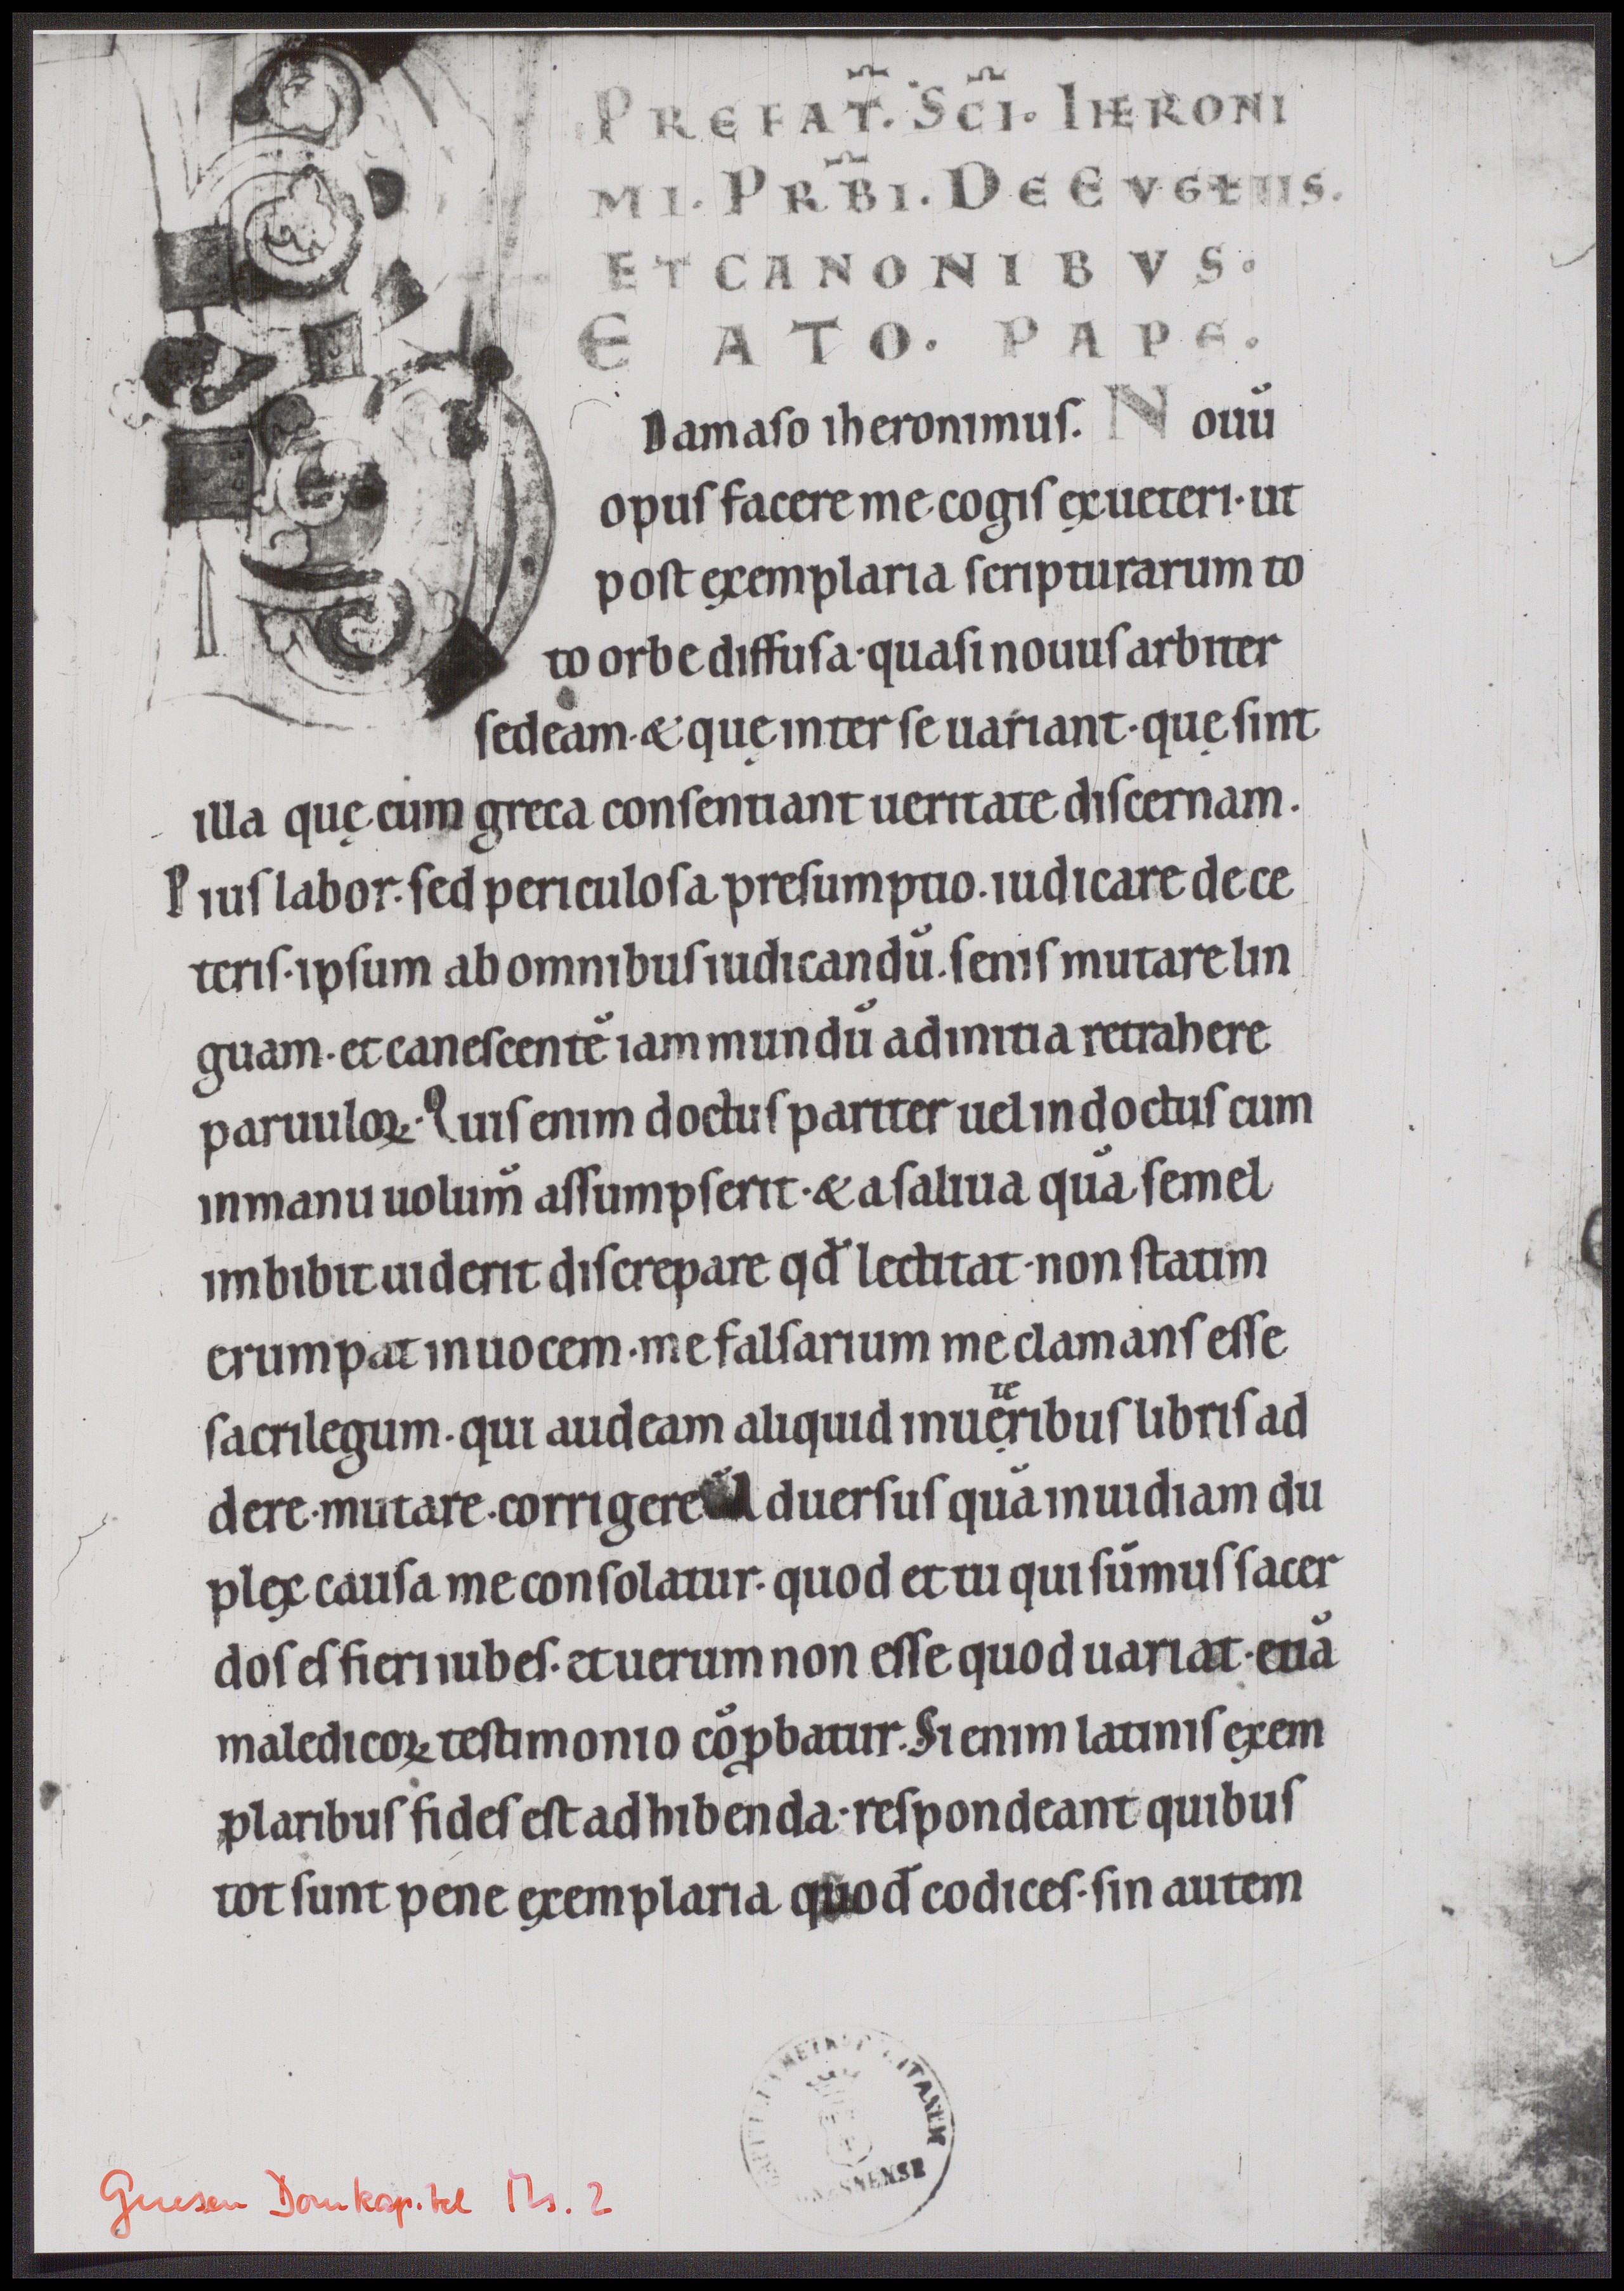 PREFAT̃. SC̃I. IHERONI
MI. PRB̃I. DE EVGŁIIS.
ET CANONIBVS.
E ATO. PAPE.
Damaſo iheronimuſ. Nouū
opuſ facere me cogiſ ex ueteri· ut
poſt exemplaria ſcripturarum to
to orbe diffuſa· quaſi nouuſ arbiter
ſedeam· & quę inter ſe uariant· quę ſint
illa quę cum greca conſentiant ueritate diſcernam.
Piuſ labor· ſed periculoſa preſumptio. iudicare de ce
teriſ· ipſum ab omnibuſ iudicandū. ſeniſ mutare lin
guam· et caneſcentē iam mundū ad initia retrahere
paruuloꝝ· Quiſ enim doctuſ pariter uel indoctuſ cum
in manu uolum̄ aſſumpſerit· & a ſaliua quā ſemel
imbibit uiderit diſcrepare qđ lectitat· non ſtatim
erumpat in uocem· me falſarium me clamanſ eſſe
ſacrilegum· qui audeam aliquid in ueteribuſ libriſ ad
dere· mutare· corrigere Aduerſuſ quā inuidiam du
plex cauſa me conſolatur· quod et tu qui ſūmuſ ſacer
doſ eſ fieri iubeſ· et uerum non eſſe quod uariat· etiā
maledicoꝝ teſtimonio cōꝓbatur. Si enim latiniſ exem
plaribuſ fideſ eſt adhibenda· reſpondeant quibuſ
tot ſunt pene exemplaria quođ codiceſ· ſin autem
GNESNENSE
Gnesen Domkapitel Ms. 2